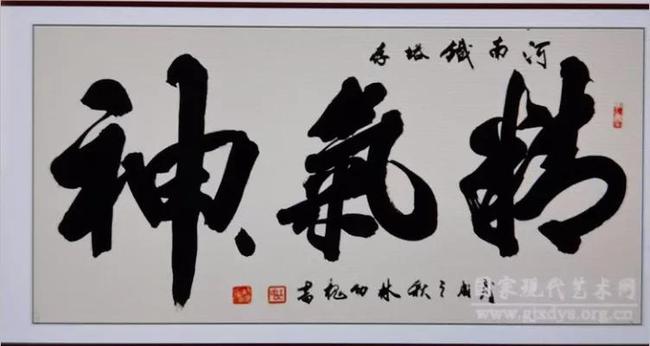 河南鐵塔存
精氣神
之秋林書
国家现代艺术网
www.gjxdys.org.cn